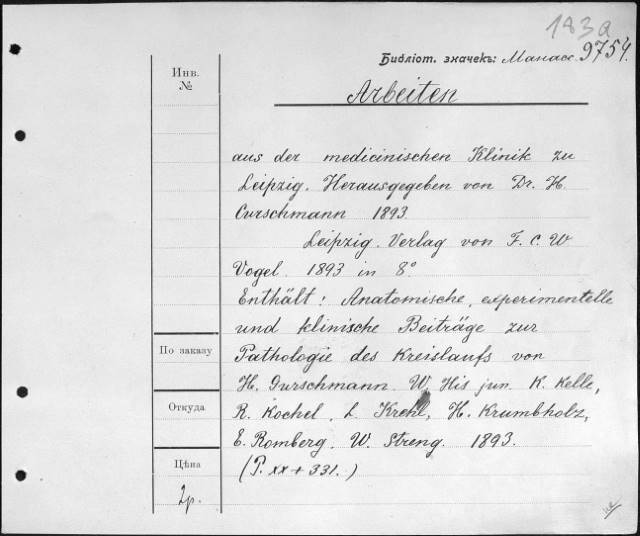 183a
Библіот. значекъ: Манасс. 9754.
Инв.
№
Arbeiten
aus der medicinischen Klinik zu
Leipzig. Herausgegeben von Dr. H.
Curschmann 1893.
Leipzig. Verlag von F. C. W
Vogel. 1893 in 8°
Enthält: Anatomische, experimentelle
und klinische Beiträge zur
По заказу
Pathologie des Kreislaufs von
H. Curschmann. W. His jun. K. Kelle,
Откуда
R. Kochel, L. Krehl, H. Krumbholz,
E. Romberg. W. Streng. 1893.
Цѣна
(P. xx + 331.)
2р.